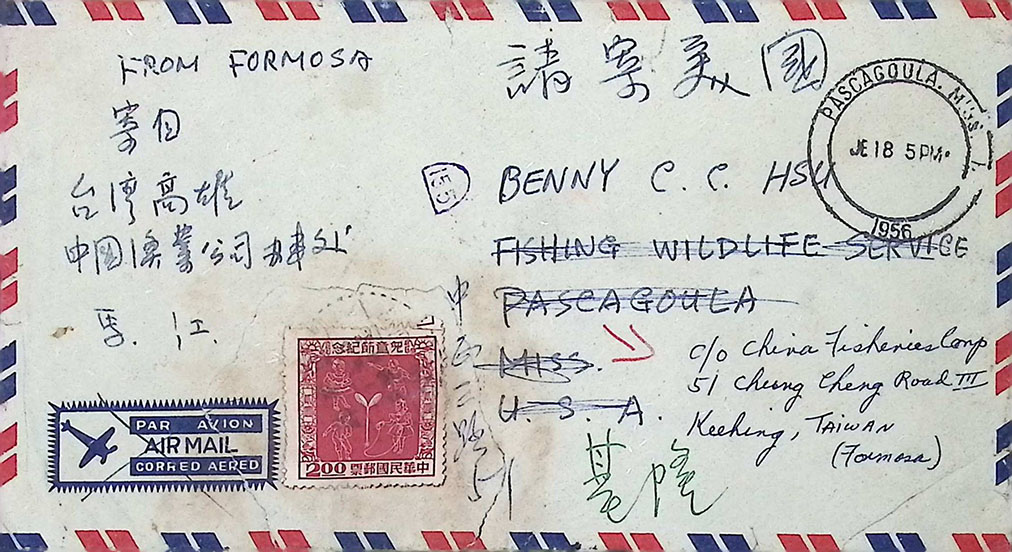 FROM FORMOSA
寄自
台湾高雄
中國漁業公司
請寄美國
PASCAGOULA, MISS.
JE 18 5 PM
1956
155
BENNY C. C. HSU
FISHING WILDLIFE SERVICE
PASCAGOULA
MISS.
U. S. A.
c/o China Fisheries Corp
51 Chung Cheng Road III
Keelung, TAIWAN
(Formosa)
基隆
中正三路51
兒童節紀念
中華民國郵票
200
PAR AVION
AIR MAIL
CORREO AEREO